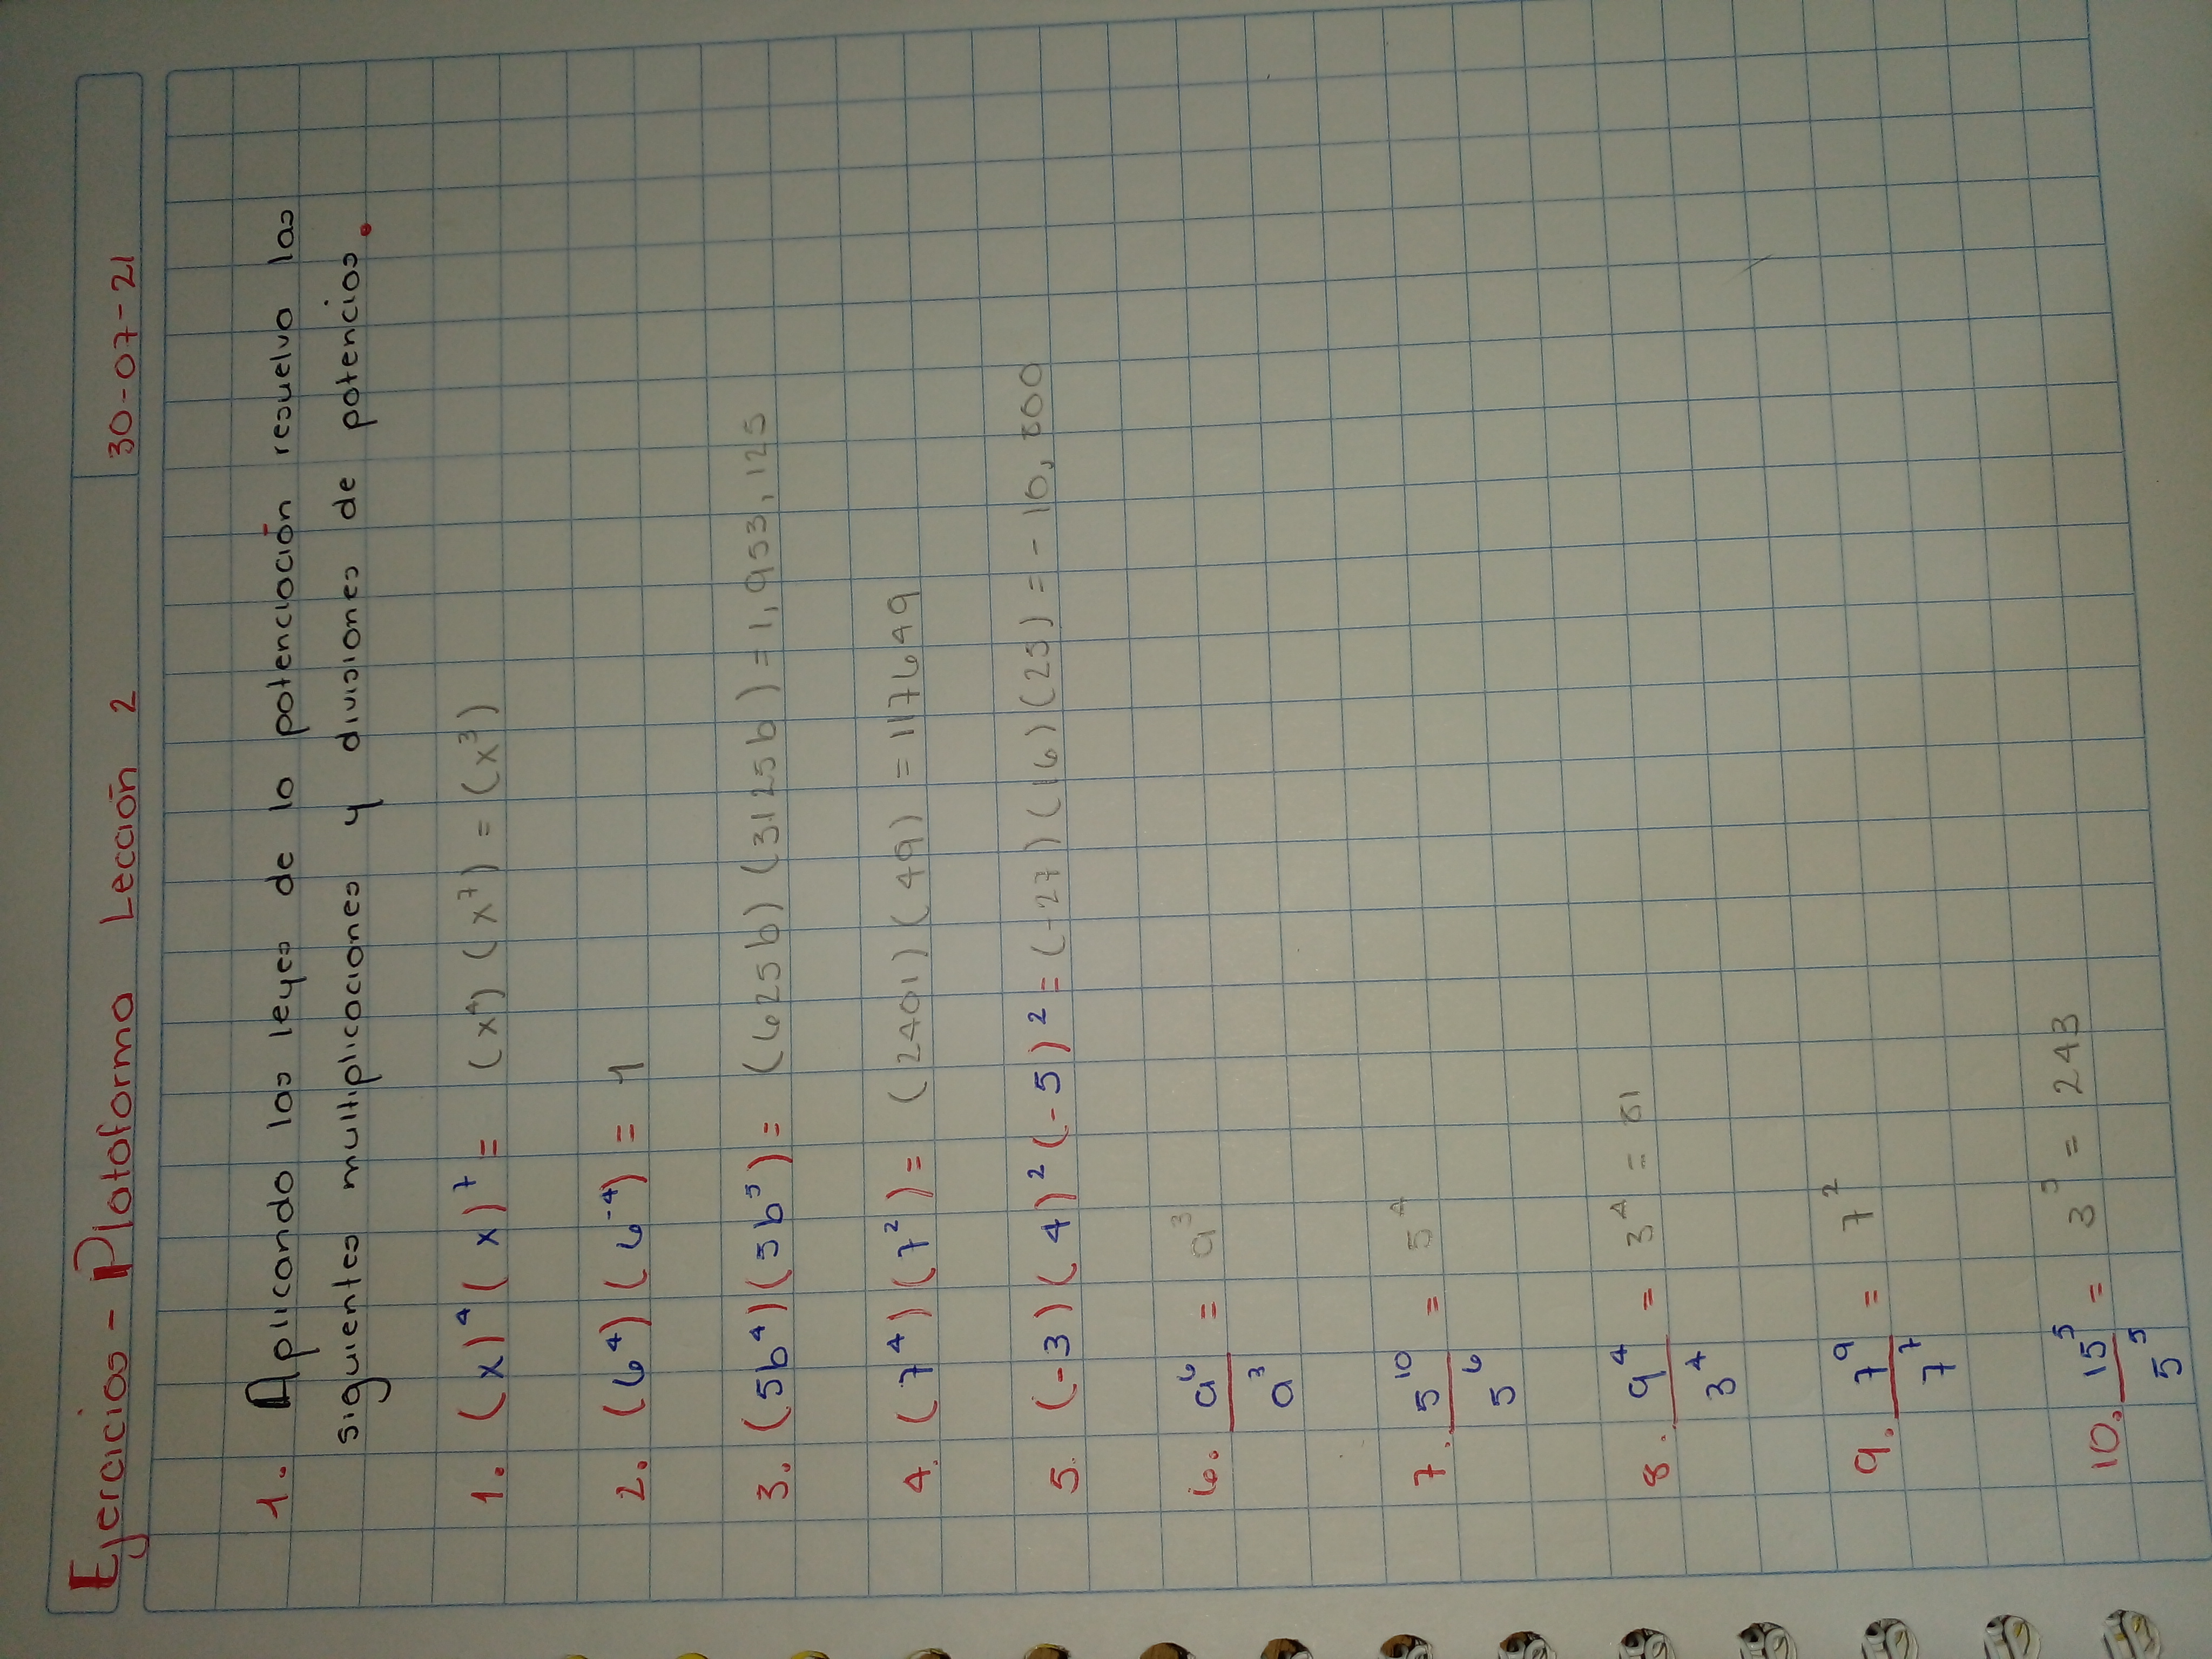 Ejercicios - Plataforma Lección 2 30-07-21
1. Aplicando las leyes de la potenciación resuelva las
siguientes multiplicaciones y divisiones de potencias.
1. (x)⁴ (x)⁷ = (x⁴) (x⁷) = (x³)
2. (6⁴) (6⁻⁴) = 1
3. (5b⁴) (5b⁵) = (625b) (3125b) = 1,953,125
4. (7⁴) (7²) = (2401) (49) = 117649
5. (-3) (4)² (-5)² = (-27) (16) (25) = -10,800
6. a⁶/a³ = a³
7. 5¹⁰/5⁶ = 5⁴
8. 9⁴/3⁴ = 3⁴ = 81
9. 7⁹/7⁷ = 7²
10. 15⁵/5⁵ = 3⁵ = 243